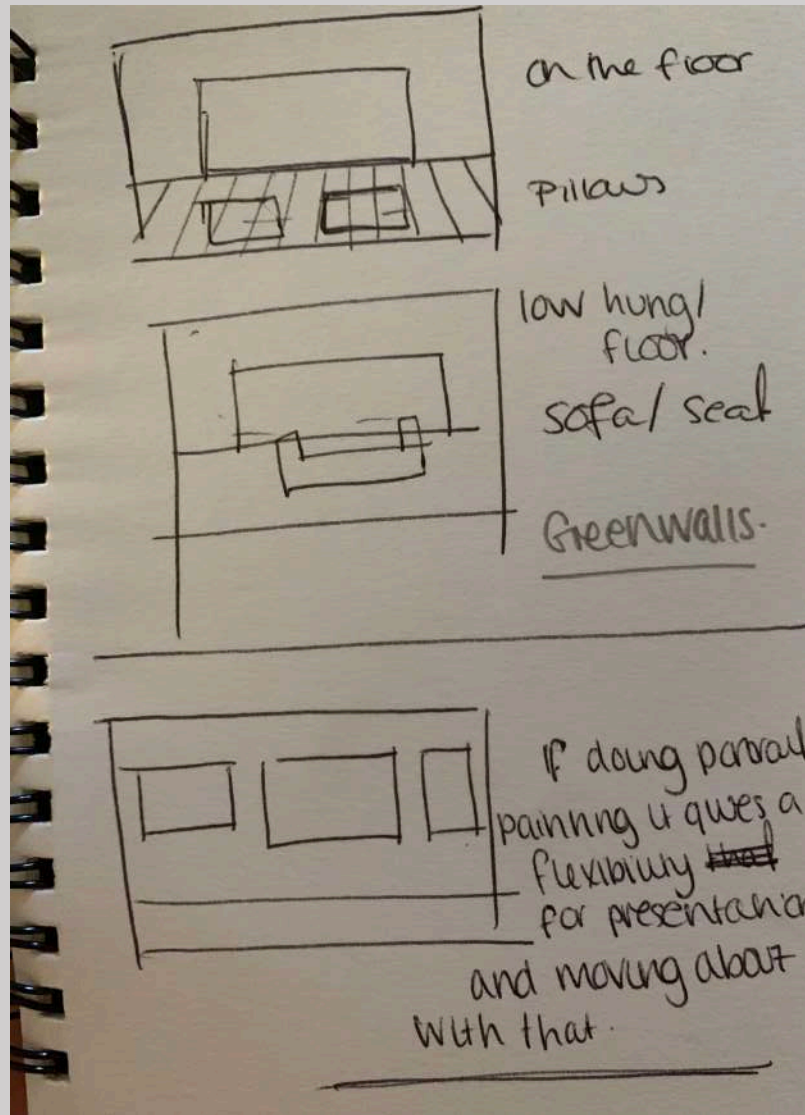 on the floor
Pillows
low hung/
floor.
sofa/ seat
Greenwalls.
If doing portrait
painting it gives a
flexibility
for presentation
and moving about
with that.